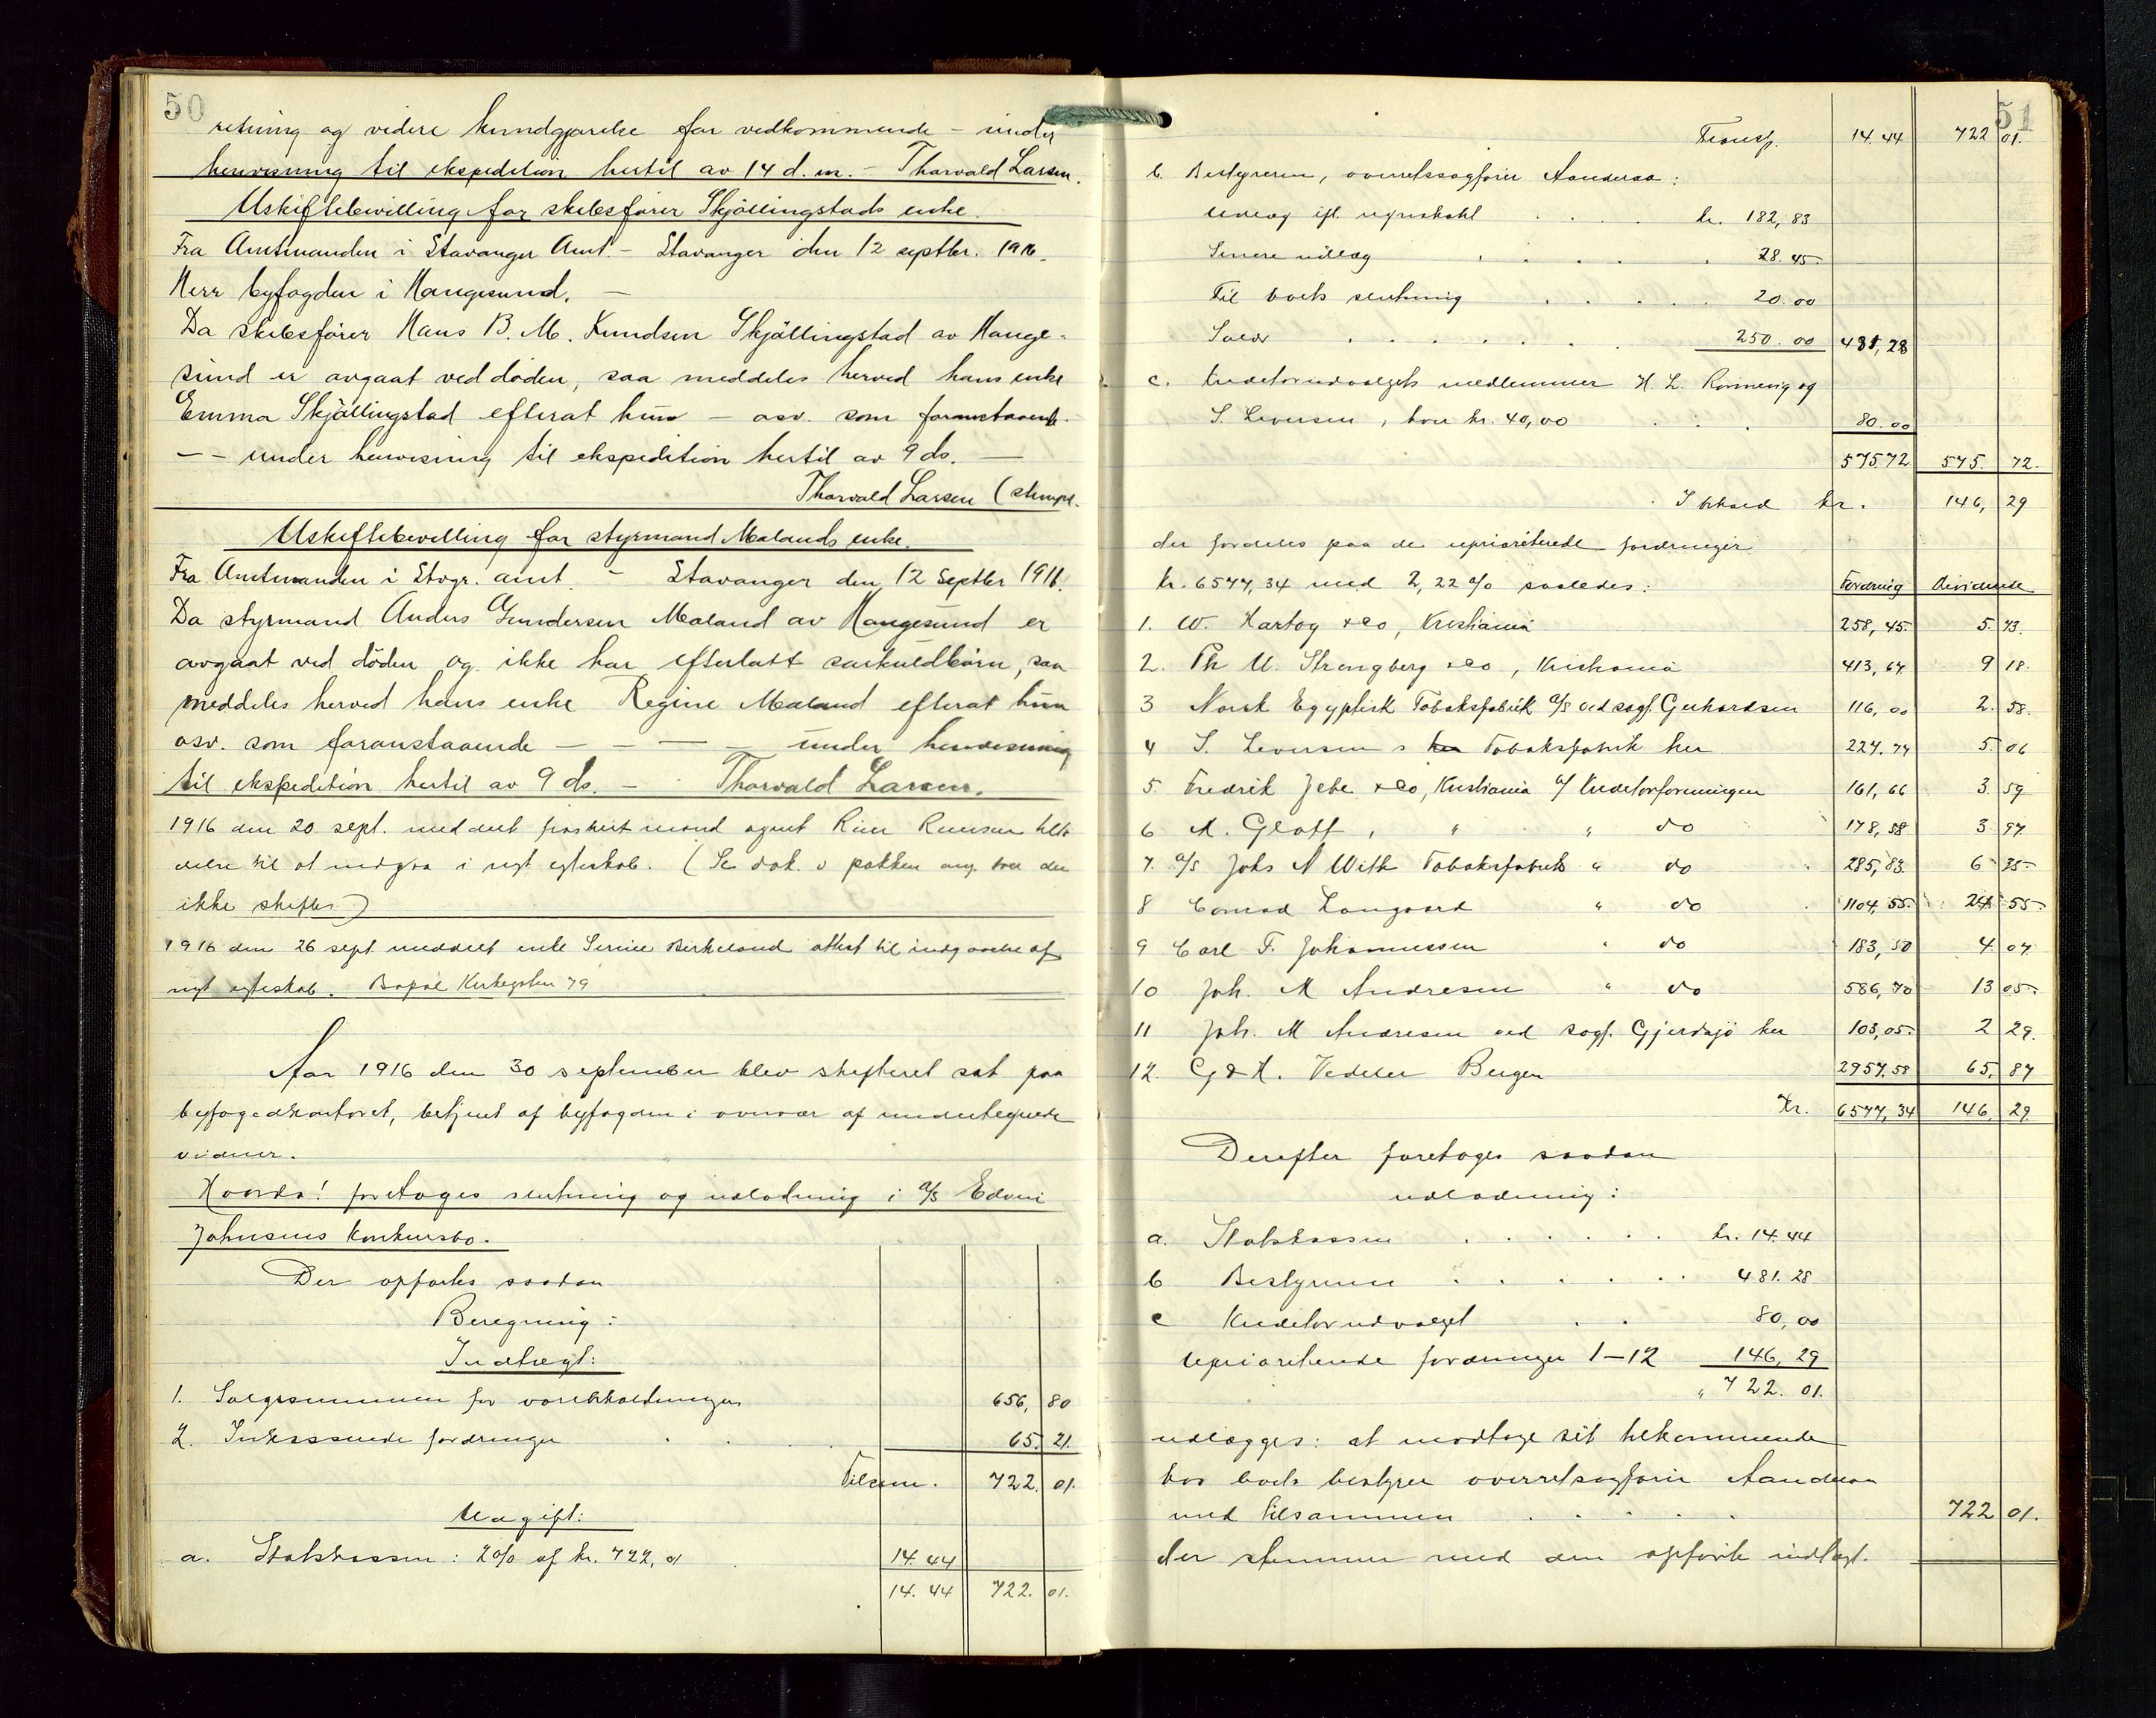 50
retning og videre kundgjørelse for vedkommende – under
henvisning til ekspedition hertil av 14 d. m. – Thorvald Larsen.
Uskiftebevilling for skibsfører Skjöllingstads enke.
Fra Amtmanden i Stavanger Amt. – Stavanger den 12 septbr. 1916.
Herr byfogden i Haugesund. –
Da skibsfører Hans B. M. Knudsen Skjöllingstad av Hauge-
sund er avgaat ved døden, saa meddeles herved hans enke
Emma Skjöllingstad efterat hun – osv. som foranstaaende.
– – under henvisning til ekspedition hertil av 9 ds. –
Thorvald Larsen (stempl.
Uskiftebevilling for styrmand Malands enke.
Fra Amtmanden i Stvgr. amt – Stavanger den 12 Septbr 1916.
Da styrmand Anders Gundersen Maland av Haugesund er
avgaat ved döden og ikke har efterlatt særkuldbørn, saa
meddeles herved hans enke Regine Maland efterat hun
osv. som foranstaaende – – – – under henvisning
til ekspedition hertil av 9 ds. – Thorvald Larsen.
1916 den 20 sept. meddelt fraskilt mand agent
delse til at indgaa i nyt egteskab. (Se dok. i pakken ang. boer der
ikke skiftes)
1916 den 26 sept meddelt enke Serine Birkeland attest til indgaaelse af
nyt egteskab. Bopæl Kirkegaten 79
Aar 1916 den 30 september blev skifteret sat paa
byfogedkontoret, betjent af byfogden i overvær af undertegnede
vidner.
Hvorda! foretoges slutning og udlodning i a/s Edvin
Johnsens konkursbo.
Der opførtes saadan
Beregning:
Indtægt:
1. Salgssummen for varebeholdningen 656, 80
2. Inkasserede fordringer . . . 65. 21.
Tilsam. 722. 01.
Udgift:
a. Statskassen: 2% af kr. 722, 01 14. 44
14. 44 722. 01.
51
Transp. 14. 44 722 01.
b. Bestyreren, overretssagfører Aanderaa:
Udlæg ifl. regnskabet . . . . kr. 182, 83
Senere udlæg . . . . . 28. 45
Til boets slutning . . . . . 20. 00
Salær . . . . . . . 250. 00 481, 28
c. Kreditorudvalgets medlemmer H. L. Rönnevig og
S. Leversen, hver kr. 40,00 . . . 80. 00
575 72 575. 72.
I behold kr. 146, 29
der fordeles paa de uprioriterede fordringer
kr. 6577, 34 med 2, 22 % saaledes: Fordring Dividende
1. W. Hartog & Co, Kristiania 258, 45 5. 73.
2. Th U. Strengberg & Co, Kristiania 413, 64 9 18.
3 Norsk Egyptisk Tobaksfabrik a/s ved sagf. Gerhardsen 116, 00 2. 58.
4 S. Leversen s Tobaksfabrik her 227. 74 5 06
5. Fredrik Jebe & Co, Kristiania v/ Kreditorforeningen 161, 66 3. 59
6 M. Glott, " " do 178, 58 3. 97
7. a/s Johs N With Tobaksfabrik " do . 285, 83. 6 35
8 Conrad Langaard " do . 1104, 55 24 55
9 Carl F. Johannessen " do 183, 50 4. 07
10 Joh. M Andresen " do 586, 70 13 05
11 Joh. M Andresen ved sagf. Gjerdsjö her 103, 05 2 29.
12. G & H. Vedeler Bergen 2957. 58 65, 87
Kr. 6577, 34 146. 29
Derefter foretoges saadan
udlodning:
a. Statskassen . . . . . . kr. 14. 44
b Bestyreren . . . . . . 481. 28
c Kreditorudvalget . . 80, 00
Uprioriterede fordringer 1–12 146, 29
" 722. 01.
udlægges: at modtage sit tilkommende
hos boets bestyrer overretssagfører Aanderaa
med tilsammen . . . . . 722 01.
der stemmer med den opførte indtægt.